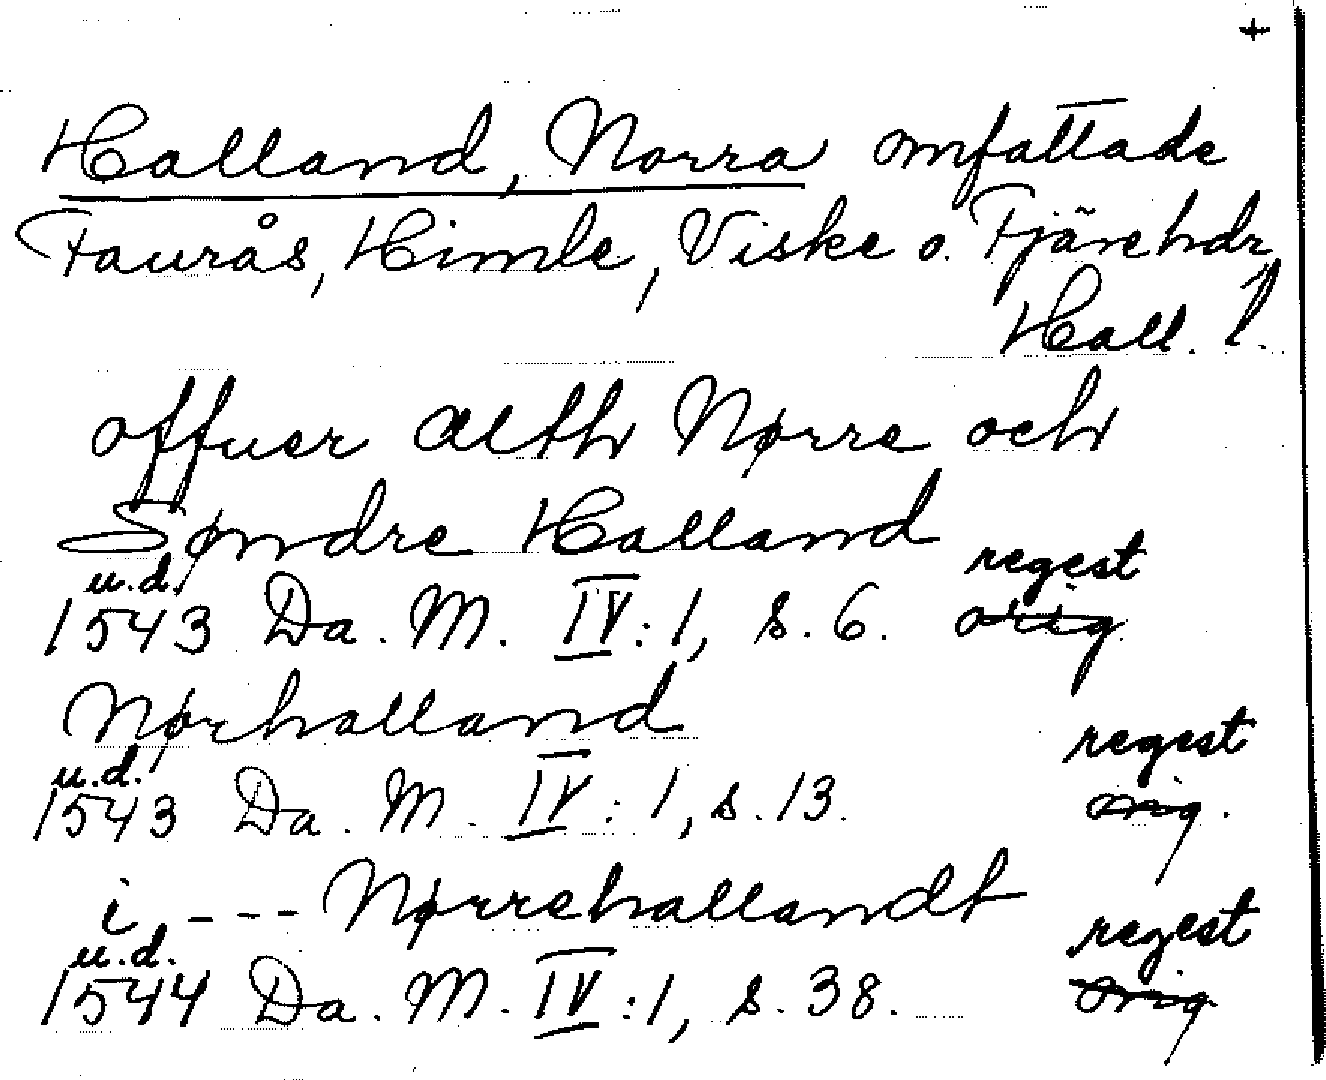 +
Halland, Norra omfattade
Faurås, Himle, Viske o. Fjäre hdr,
Hall. l.
offuer alth Nørre och
Søndre Halland
u.d. regest
1543 Da. M. IV:1, s. 6. orig
Nørhalland
u.d. regest
1543 Da. M. IV:1, s. 13. orig.
i --- Nørrehallandt
u.d. regest
1544 Da. M. IV:1, s. 38. orig